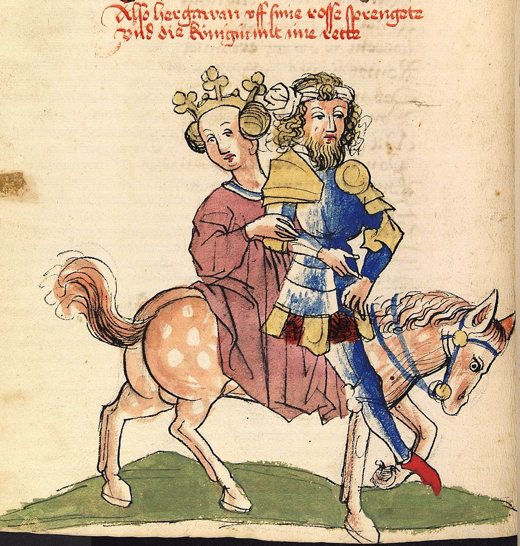 Also her gawan vff sime rosse sprengete
Vnd die kúnigin mit ime rette